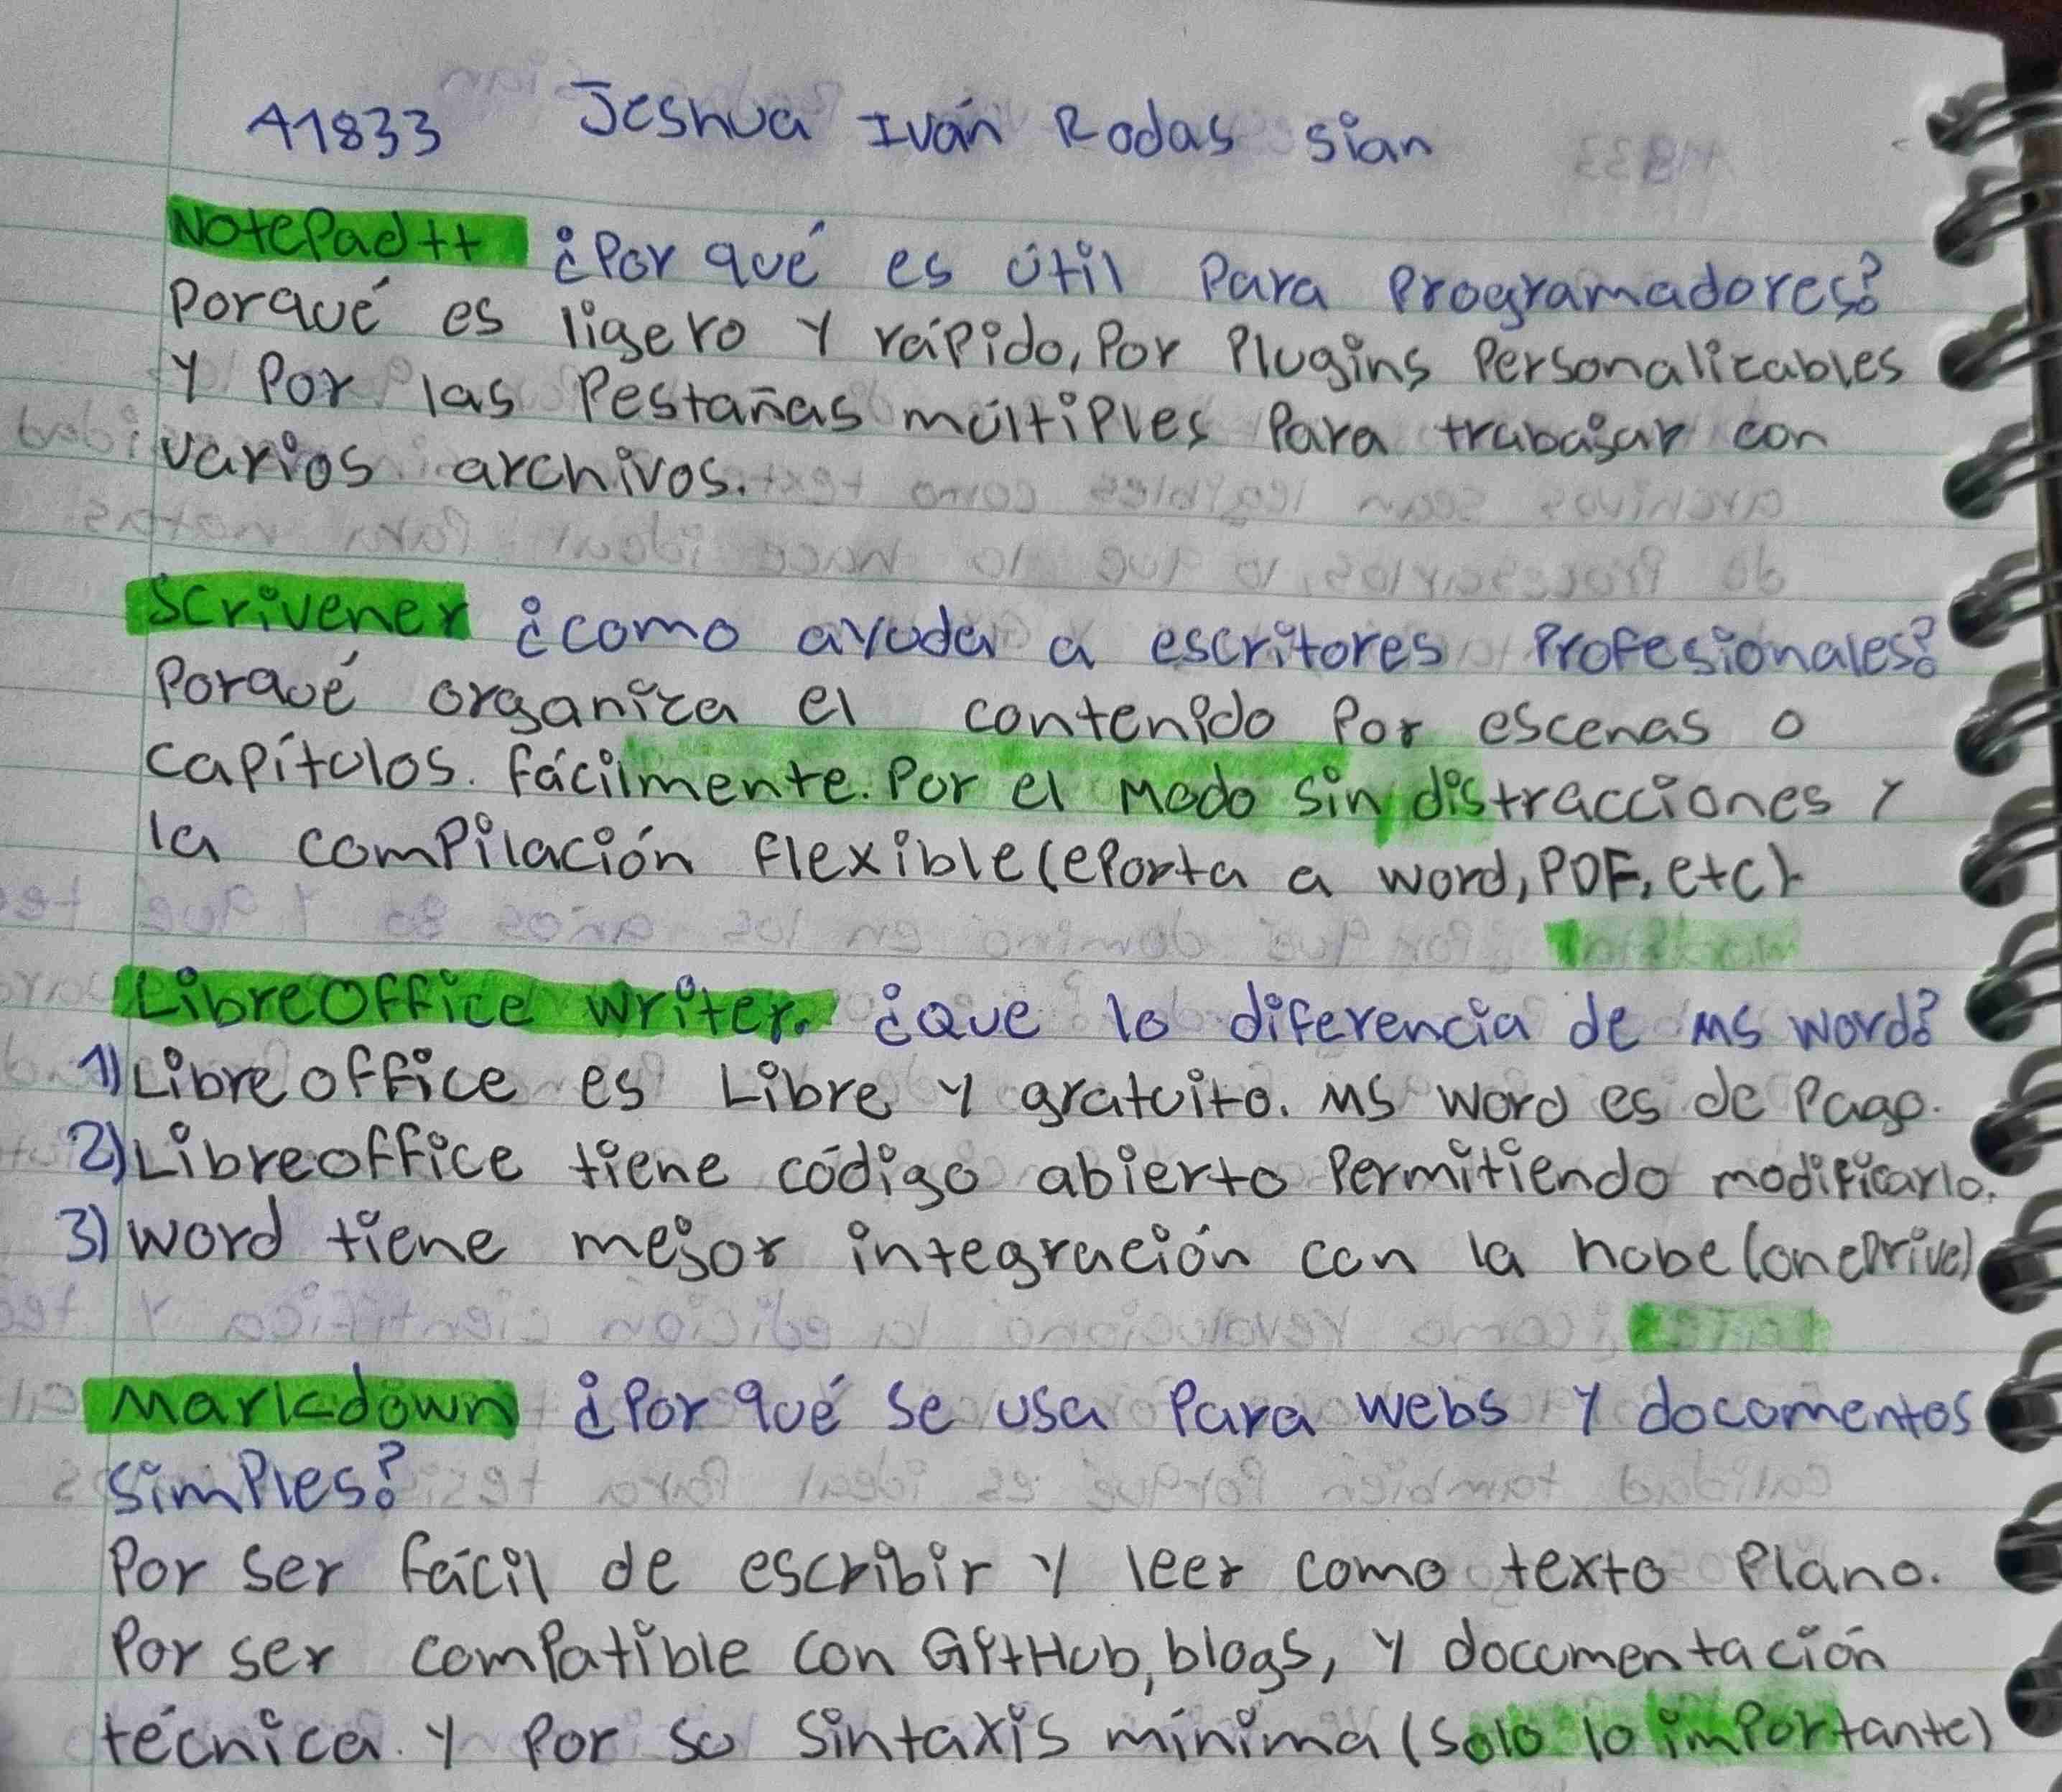 A1833 Jeshua Iván Rodas Sian
NotePad++ ¿Por qué es útil Para Programadores?
Porqué es ligero Y rápido, Por Plugins Personalizables
Y Por las Pestañas múltiples Para trabajar con
varios archivos.
Scrivener ¿como ayuda a escritores Profesionales?
Porqué organiza el contenido Por escenas o
capítulos. fácilmente. Por el Modo Sin distracciones Y
la compilación flexible (eporta a word, PDF, etc)
LibreOffice writer. ¿Que lo diferencia de MS word?
1) Libreoffice es Libre y gratuito. MS Word es de Pago.
2) Libreoffice tiene código abierto Permitiendo modificarlo.
3) word tiene mejor integración con la nube (oneDrive)
Markdown ¿Por qué se usa Para webs Y documentos
simples?
Por ser fácil de escribir y leer como texto Plano.
Por ser compatible con GitHub, blogs, y documentación
técnica. y Por su sintaxis mínima (solo lo importante)